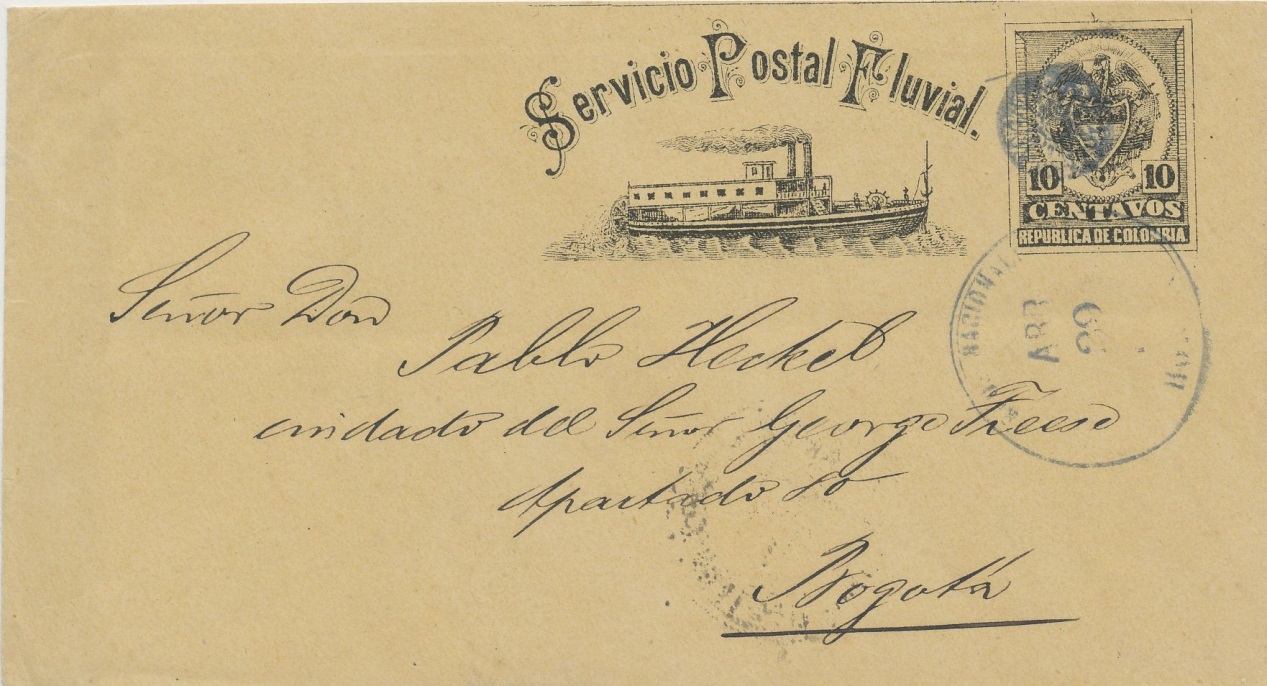 Servicio Postal Fluvial.
10 10
CENTAVOS
REPUBLICA DE COLOMBIA
NACIONAL
ABR
Señor Don
Pablo Heckel
cuidado del Señor George Freese
Apartado 80
Bogotá